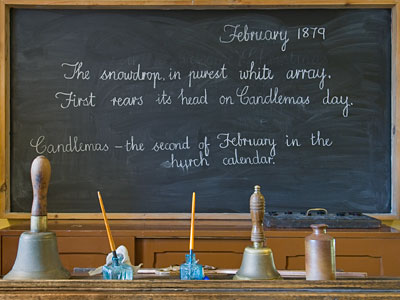 February 1879
The snowdrop, in purest white array,
First rears its head on Candlemas day.
Candlemas – the second of February in the
church calendar.